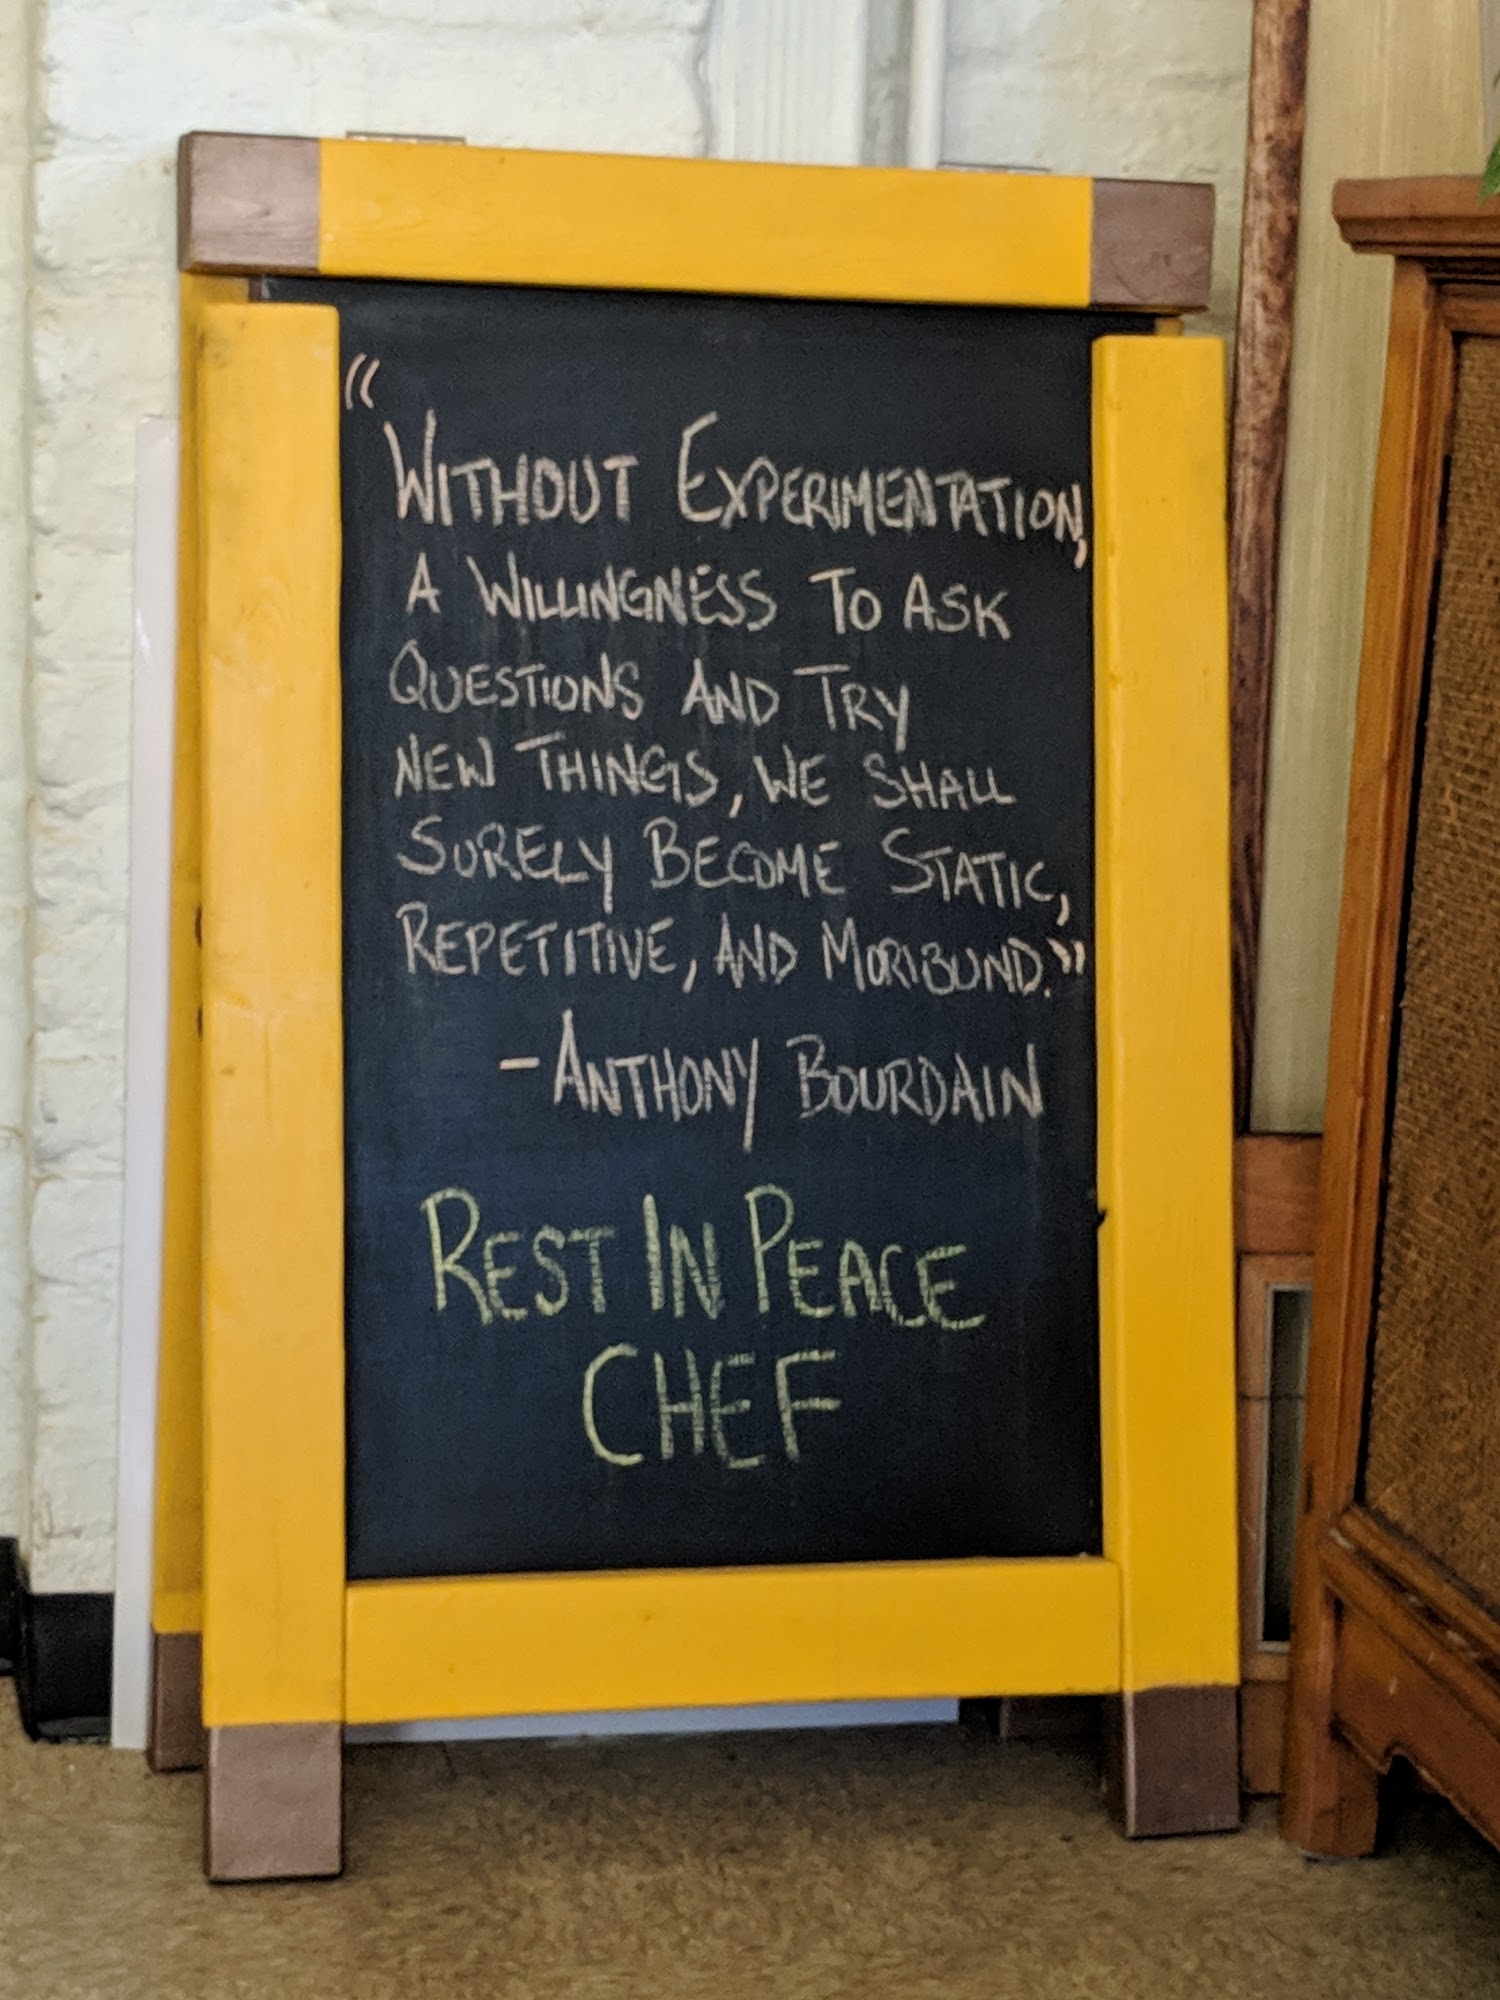 “
WITHOUT EXPERIMENTATION,
A WILLINGNESS TO ASK
QUESTIONS AND TRY
NEW THINGS, WE SHALL
SURELY BECOME STATIC,
REPETITIVE, AND MORIBUND.”
- ANTHONY BOURDAIN
REST IN PEACE
CHEF